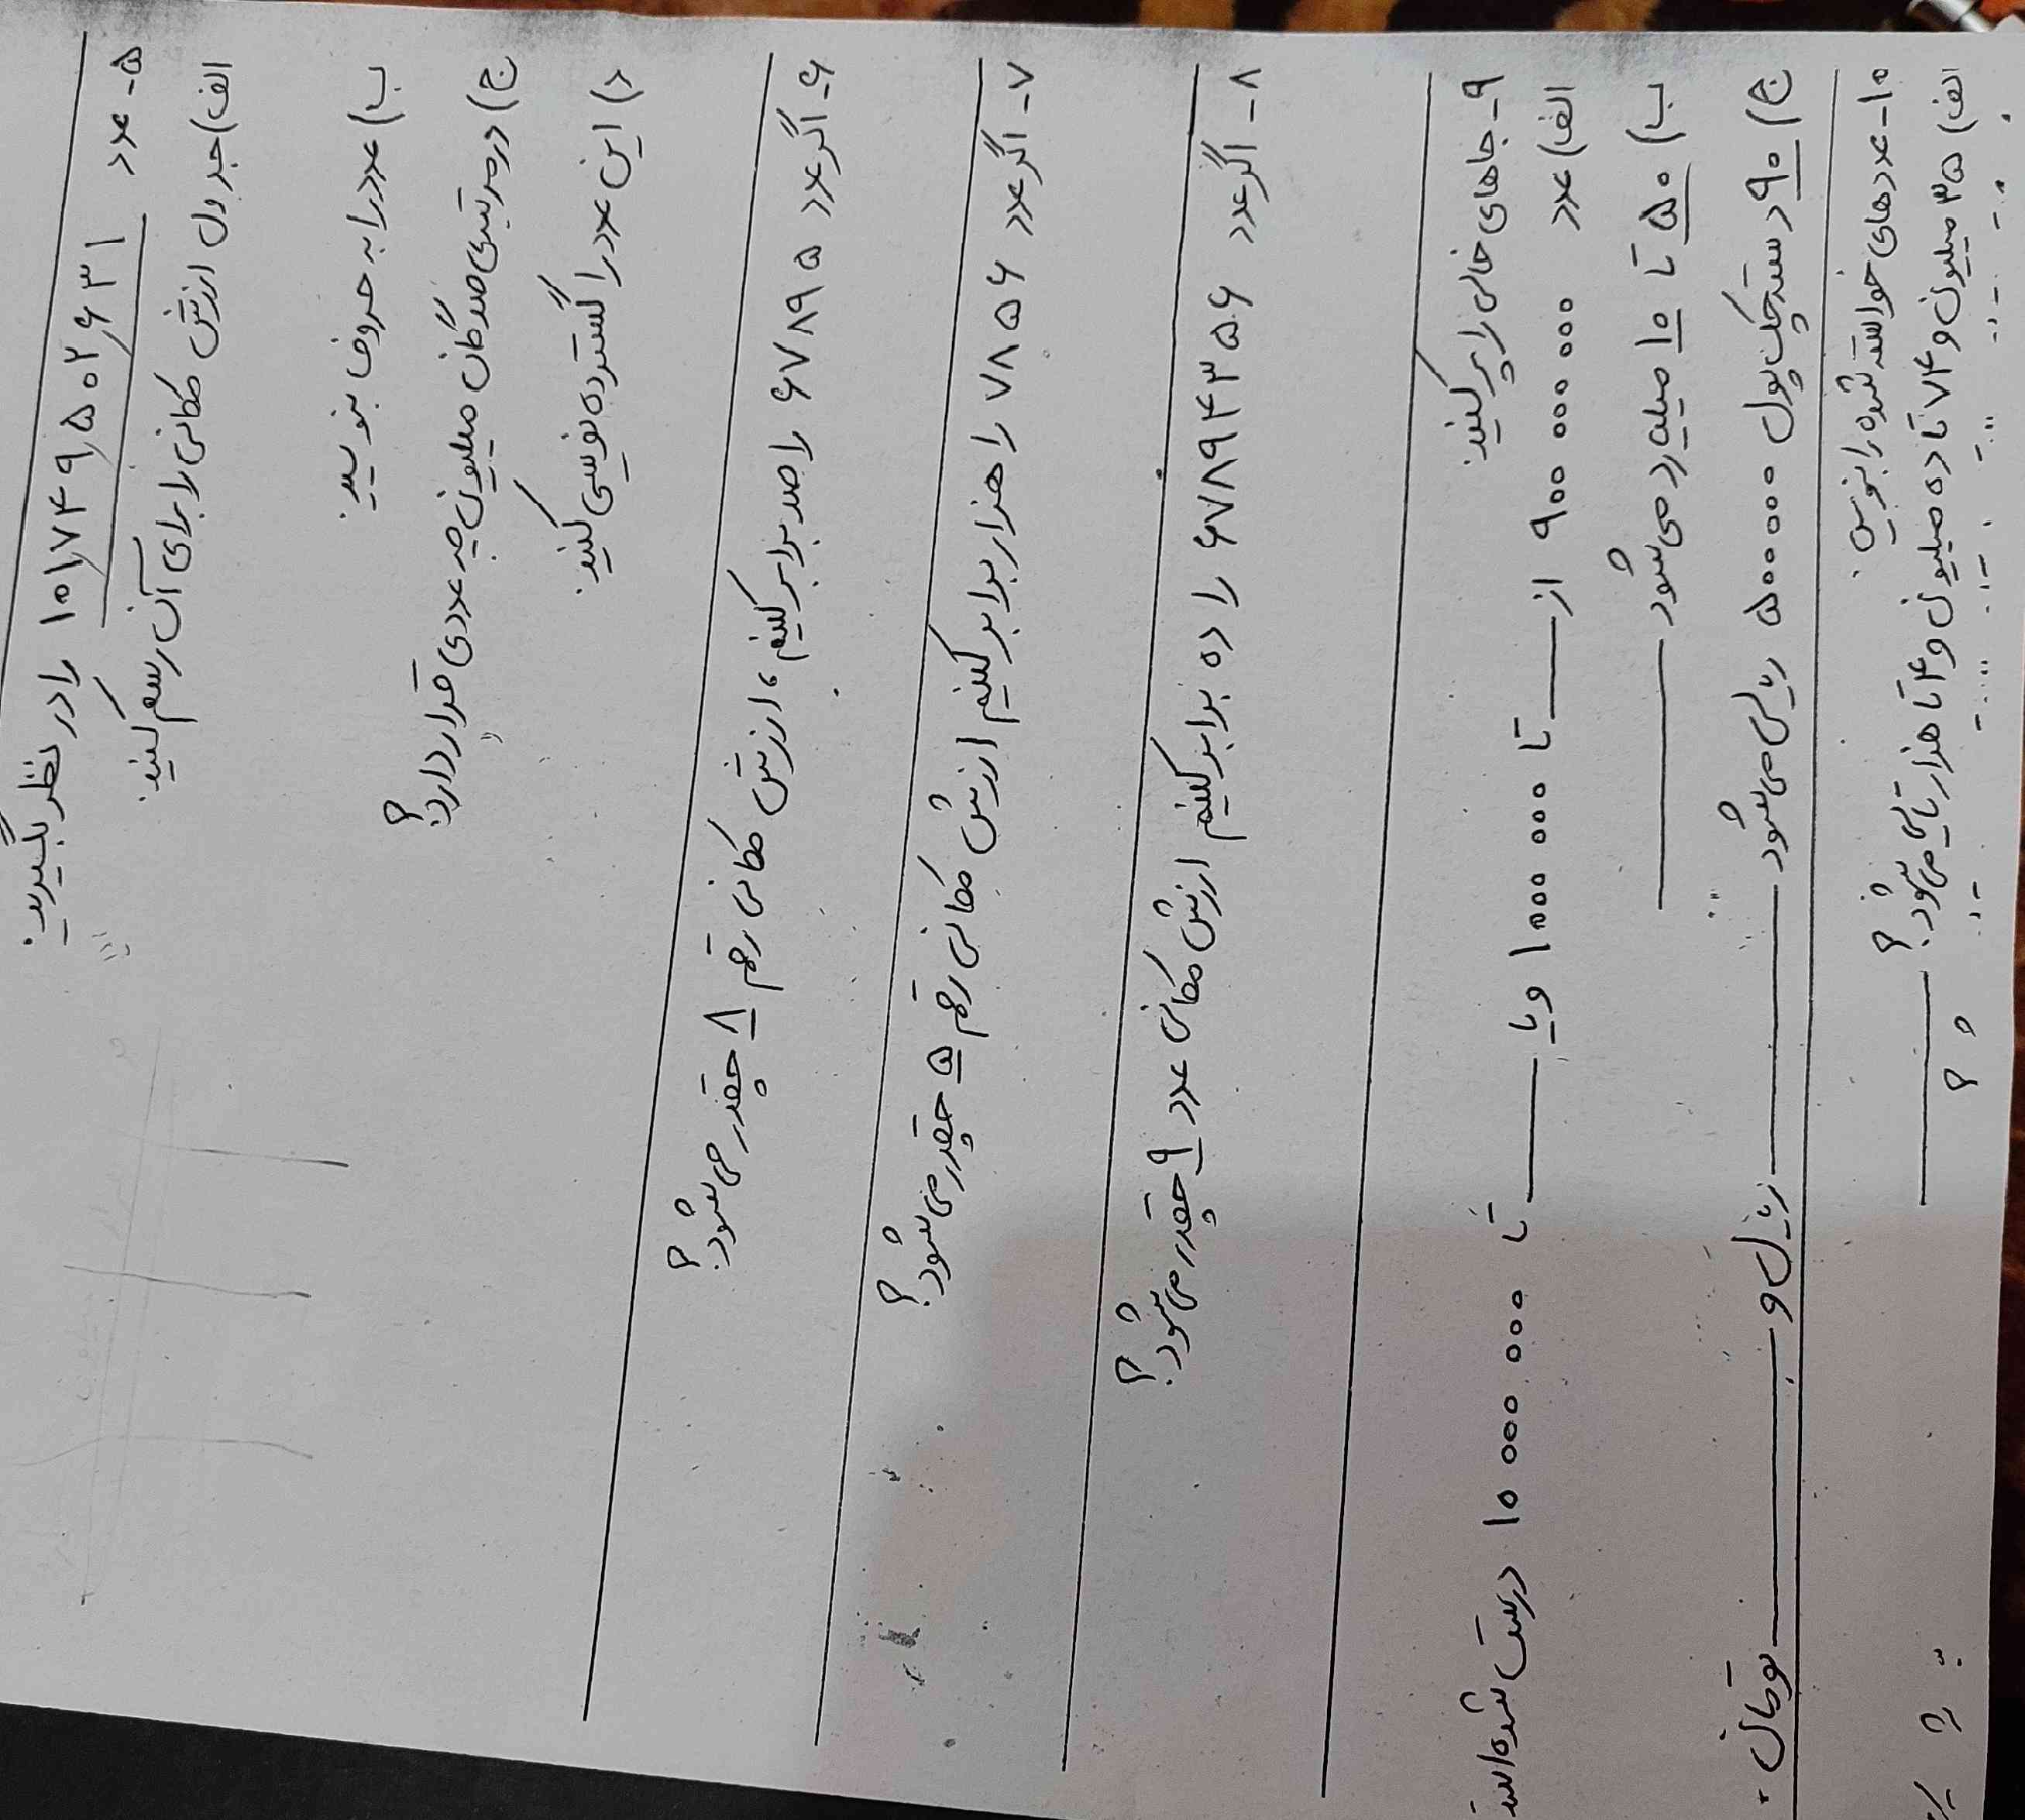 ۵- عدد ۱۰۱,۷۴۹,۵۰۲,۶۳۱ را در نظر بگیرید.
الف) جدول ارزش مکانی را برای آن رسم کنید.
ب) عدد را به حروف بنویسید.
ج) در مرتبه‌ی صدگان میلیون چه عددی قرار دارد؟
د) این عدد را گسترده نویسی کنید.
۶- اگر عدد ۶۷۸۹۵ را صد برابر کنیم، ارزش مکانی رقم ۸ چقدر می‌شود؟
۷- اگر عدد ۷۸۵۶ را هزار برابر کنیم ارزش مکانی رقم ۵ چقدر می‌شود؟
۸- اگر عدد ۶۷۸۹۴۳۵۶ را ده برابر کنیم ارزش مکانی عدد ۹ چقدر می‌شود؟
۹- جاهای خالی را پر کنید.
الف) عدد ۹۰۰ ۰۰۰ ۰۰۰ ۰۰۰ از ــــــ تا ۱۰۰۰ ۰۰۰ ۰۰۰ و یا ــــــ تا ۱۰ ۰۰۰ ۰۰۰ ۰۰۰ درست شده است
ب) ۵۰ تا ۱۰ میلیارد می‌شود ــــــ
ج) ۹۰ دسته چک پول ۵۰۰۰۰۰ ریالی می‌شود ــــــ ریال و ــــــ تومان.
۱۰- عددهای خواسته شده را بنویس.
الف) ۳۵ میلیون و ۷۴ تا ده میلیون و ۴ تا هزار تایی می‌شود؟ ــــــ